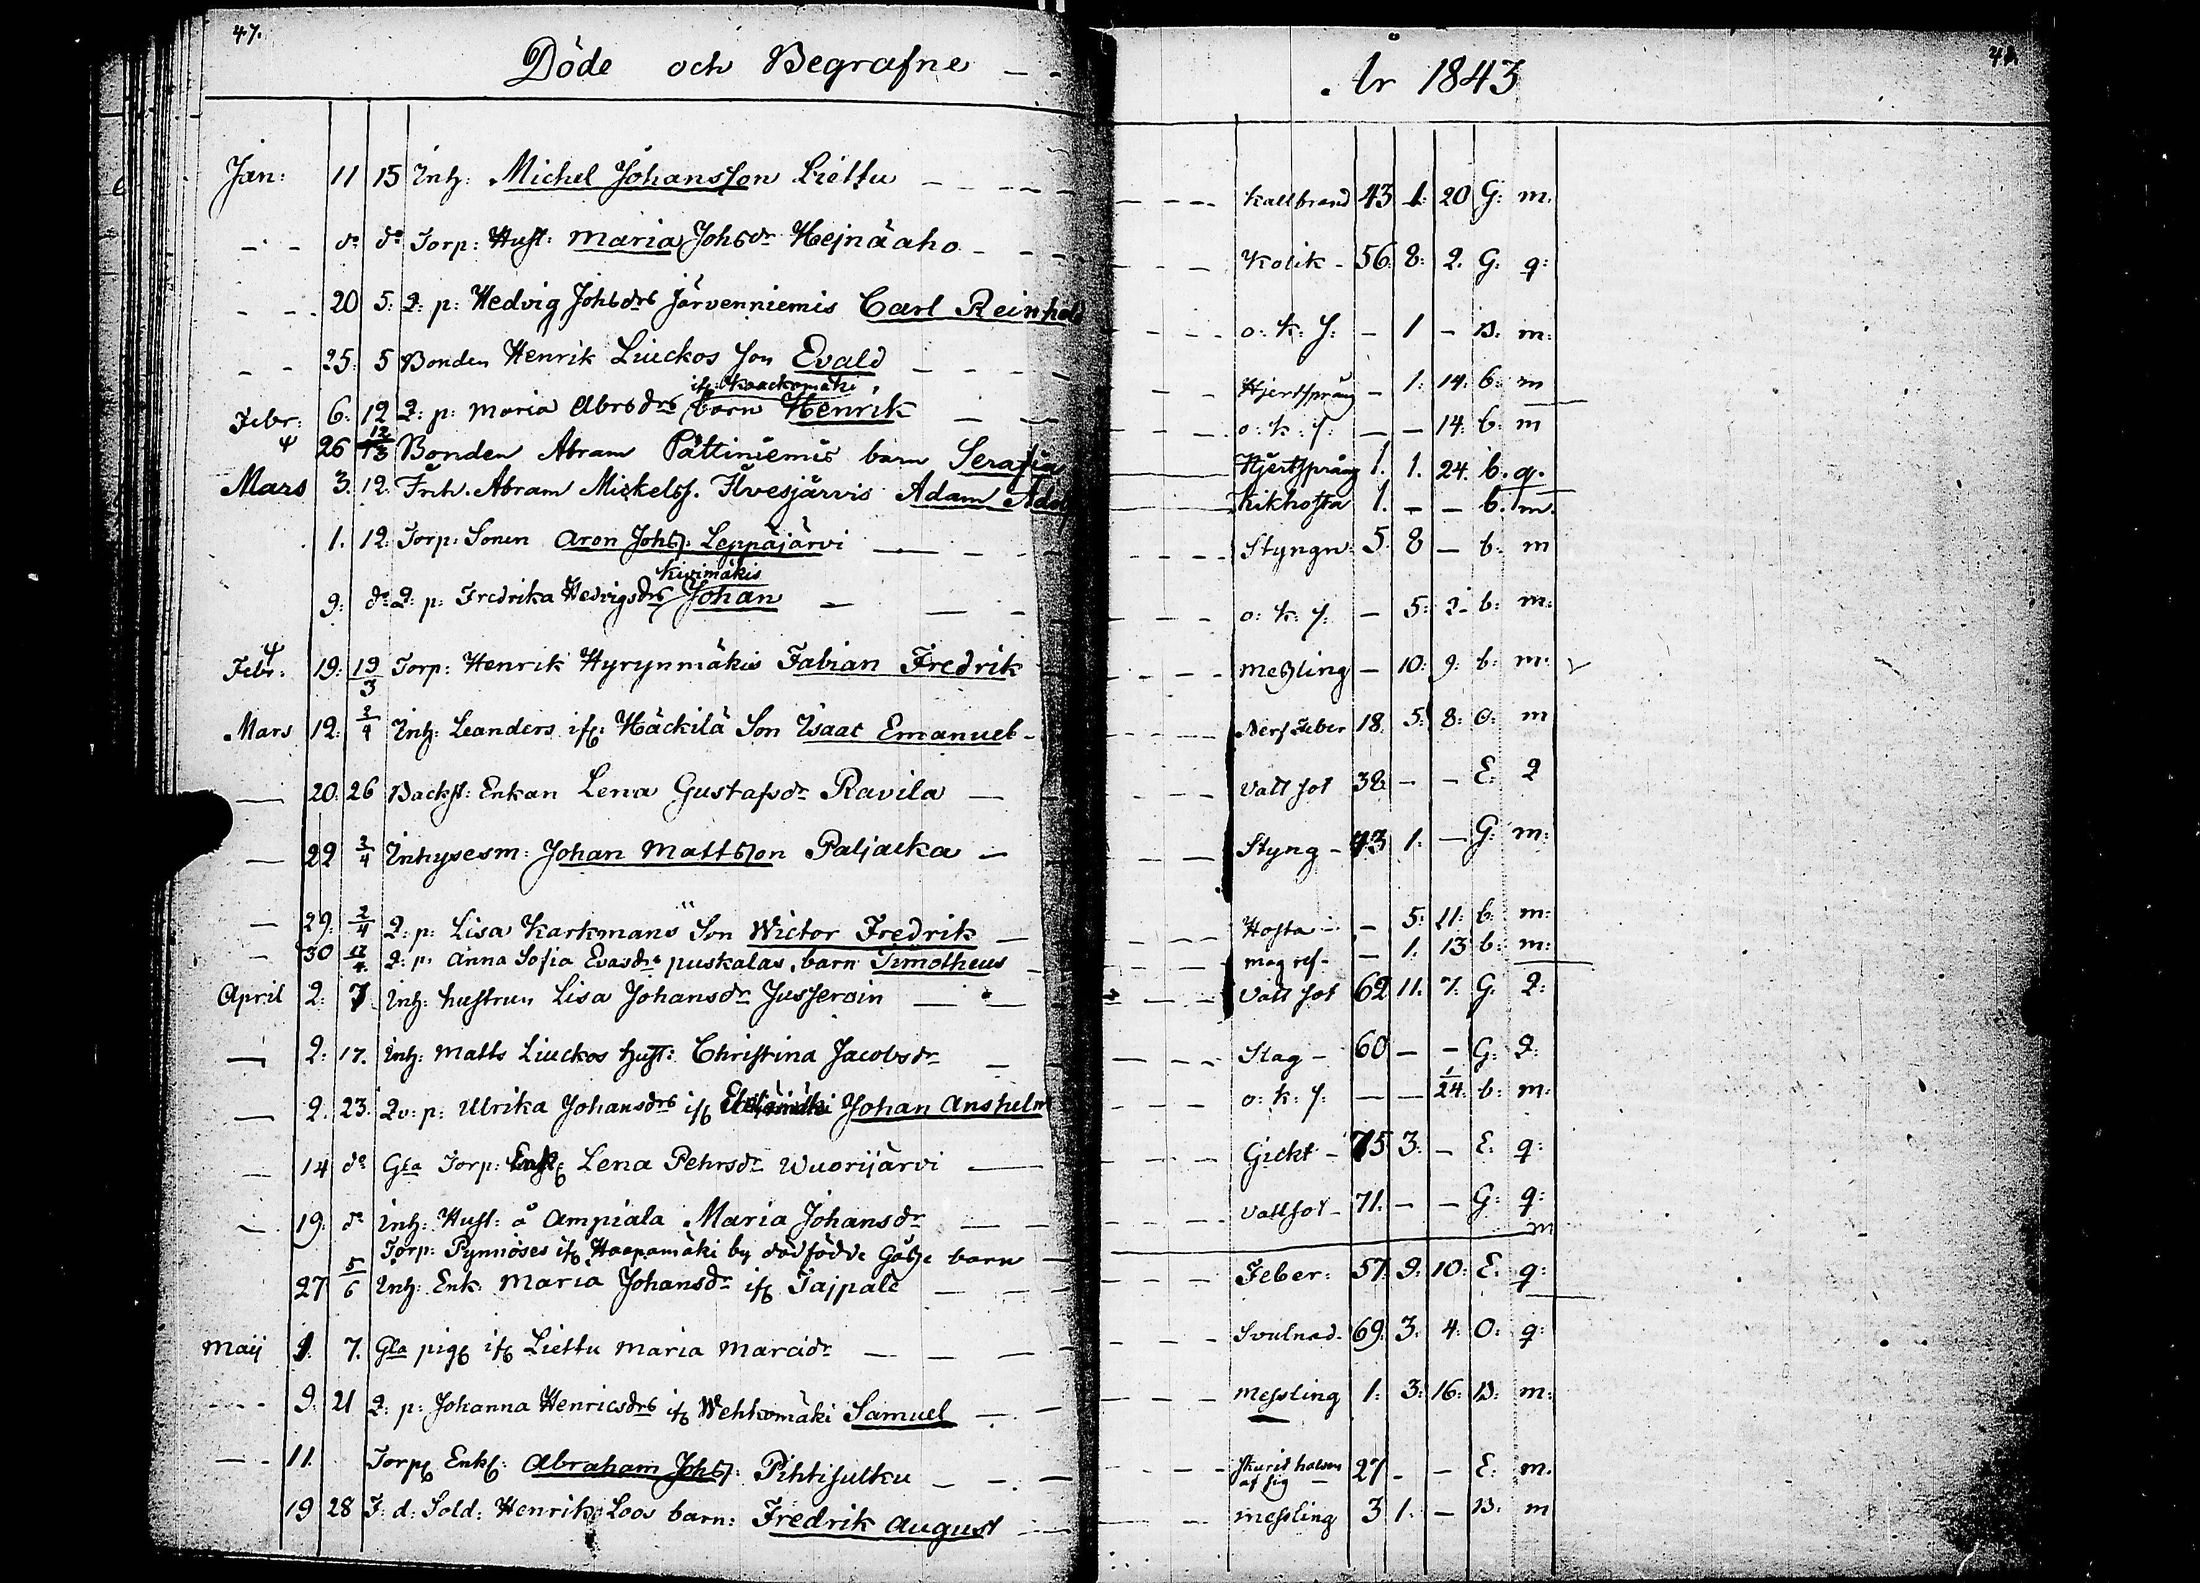 47.
Döde och Begrafne
År 1843
Jan: 11 15 Inh: Michel Johansson Liettu — Kallbrand 43 1: 20 G: m:
— do do Torp: Hust: Maria Johsdr Hejnäaho — Kolik — 56 8: 2. G: q:
— 20 5: Q: p: Hedvig Johsdrs Järvenniemis Carl Reinhold — o: k: s: — 1 — B: m:
— 25: 5 Bonden Henrik Liuckos Son Evald — Hjertsprång — 1: 14: b: m
if: Kaackomäki
Febr: 6: 12 Q: p: Maria Abrsdrs barn Henrik — o: k: s: — — 14: b: m
26 12/3 Bonden Abram Pättiniemis barn Serafia — Hjertsprång 1. 1. 24. b. q.
Mars 3. 12. Inh. Abram Mickelss. Ilvesjärvis Adam Adolf — Kikhosta 1. — — b. m.
1. 12: Torp: Sonen Aron Johss. Leppäjärvi — Styngn: 5 8 — b: m
Kivimäkis
9: do Q: p: Fredrika Hedvigsdrs Johan — o: k: s: — 5: 2- b: m:
Febr: 19: 19/3 Torp: Henrik Hyrynmäkis Fabian Fredrik — Messling — 10: 9: b: m:
Mars 12: 2/4 Inh: Leanders if: Häckilä Son Isaac Emanuel — Nerf Feber 18 5: 8: O: m
— 20: 26 Backst: Enkan Lena Gustafsdr Ravila — Vatt sot 38 — — E: Q
— 22 2/4 Inhysesm: Johan Mattsson Paljacka — Styng — 73 1. — G: m:
— 29: 2/4 Q: p: Lisa Karkmans Son Wictor Fredrik — Hosta — — 5: 11: b: m:
— 30 12/4 Q: p: Anna Sofia Evasdrs puskalas, barn Timotheus — mag ref — 1. 13 b: m:
April 2: 7. Inh: hustrun Lisa Johansdr Jusseroin — Vatt sot 62 11. 7. G. Q:
— 2: 17. Inh: Matts Liuckos Hust: Christina Jacobsdr — Slag — 60 — — G: Q:
— 2. 23. Qv: p: Ulrika Johansdrs if: Johan Anshelm — o: k: s: — — 24: b: m:
— 14 do Gla Torp: Enk: Lena Pehrsdr Wuorijärvi — Gickt — 75 3: — E: q:
— 19: do Inh: Hust: å Ampiala Maria Johansdr — Vattsot — 71. — — G: q:
Torp: Pynnöses if: Haapamäki by dödfödde Gosse barn — m
27 5/6 Inh: Enk: Maria Johansdr if: Tajpale — Feber: 57: 9: 10: E: q:
Maij 1. 7. Gla pig: if: Liettu Maria Marcidr — Svulnad — 69: 3: 4: O: q:
— 9: 21 Q: p: Johanna Henricsdrs if: Wehkomäki Samuel — Messling 1: 3: 16: B: m:
— 11. Torp: Enkl: Abraham Johss: Pihtisulku — skurit halsen af sig — 27 — — E: m.
19 28 F: d: Sold: Henrik Loos barn: Fredrik August — messling 3 1. — B: m